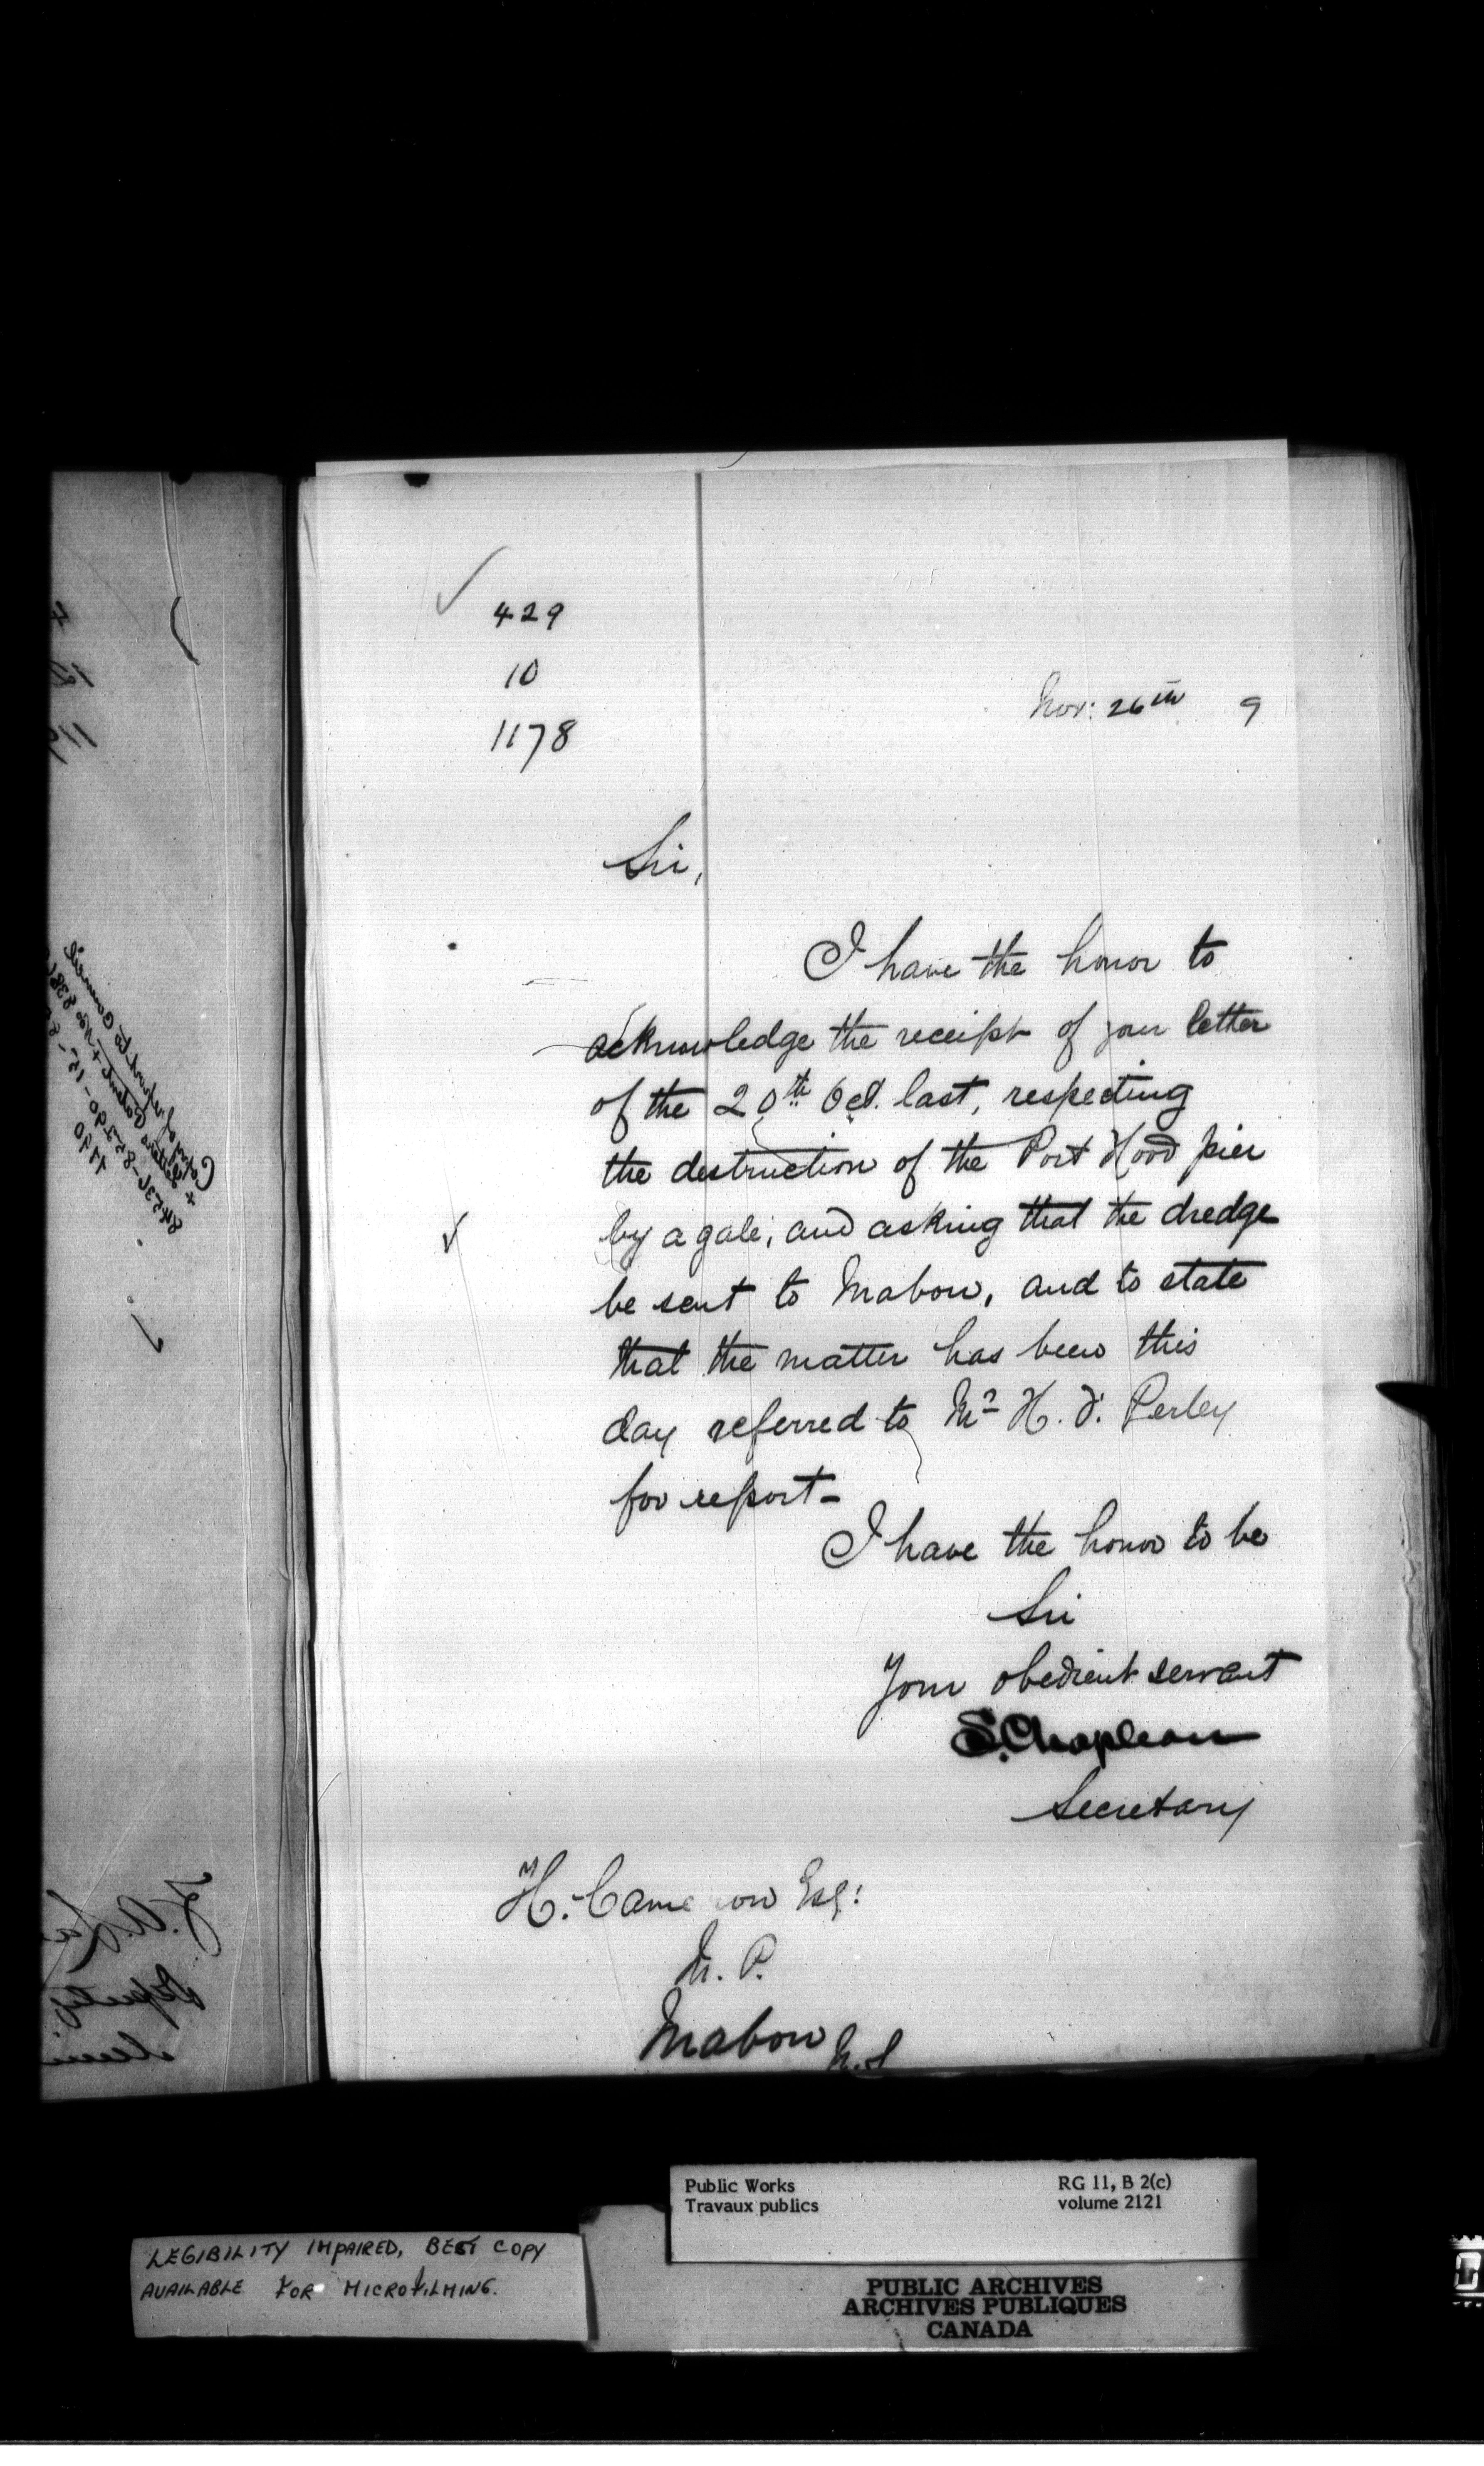 429
10
1178
Nov: 26th 9
Sir,
I have the honor to
acknowledge the receipt of your letter
of the 20th Oct. last, respecting
the destruction of the Port Hood pier
by a gale; and asking that the dredge
be sent to Mabou, and to state
that the matter has been this
day referred to Mr H. F. Perley
for report-
I have the honor to be
Sir
Your obedient servant
S. Chapleau
Secretary
H. Cameron Esq:
M. P.
Mabou N.S
Public Works
Travaux publics
RG 11, B 2(c)
volume 2121
LEGIBILITY IMPAIRED, BEST COPY
AVAILABLE FOR MICROFILMING.
PUBLIC ARCHIVES
ARCHIVES PUBLIQUES
CANADA